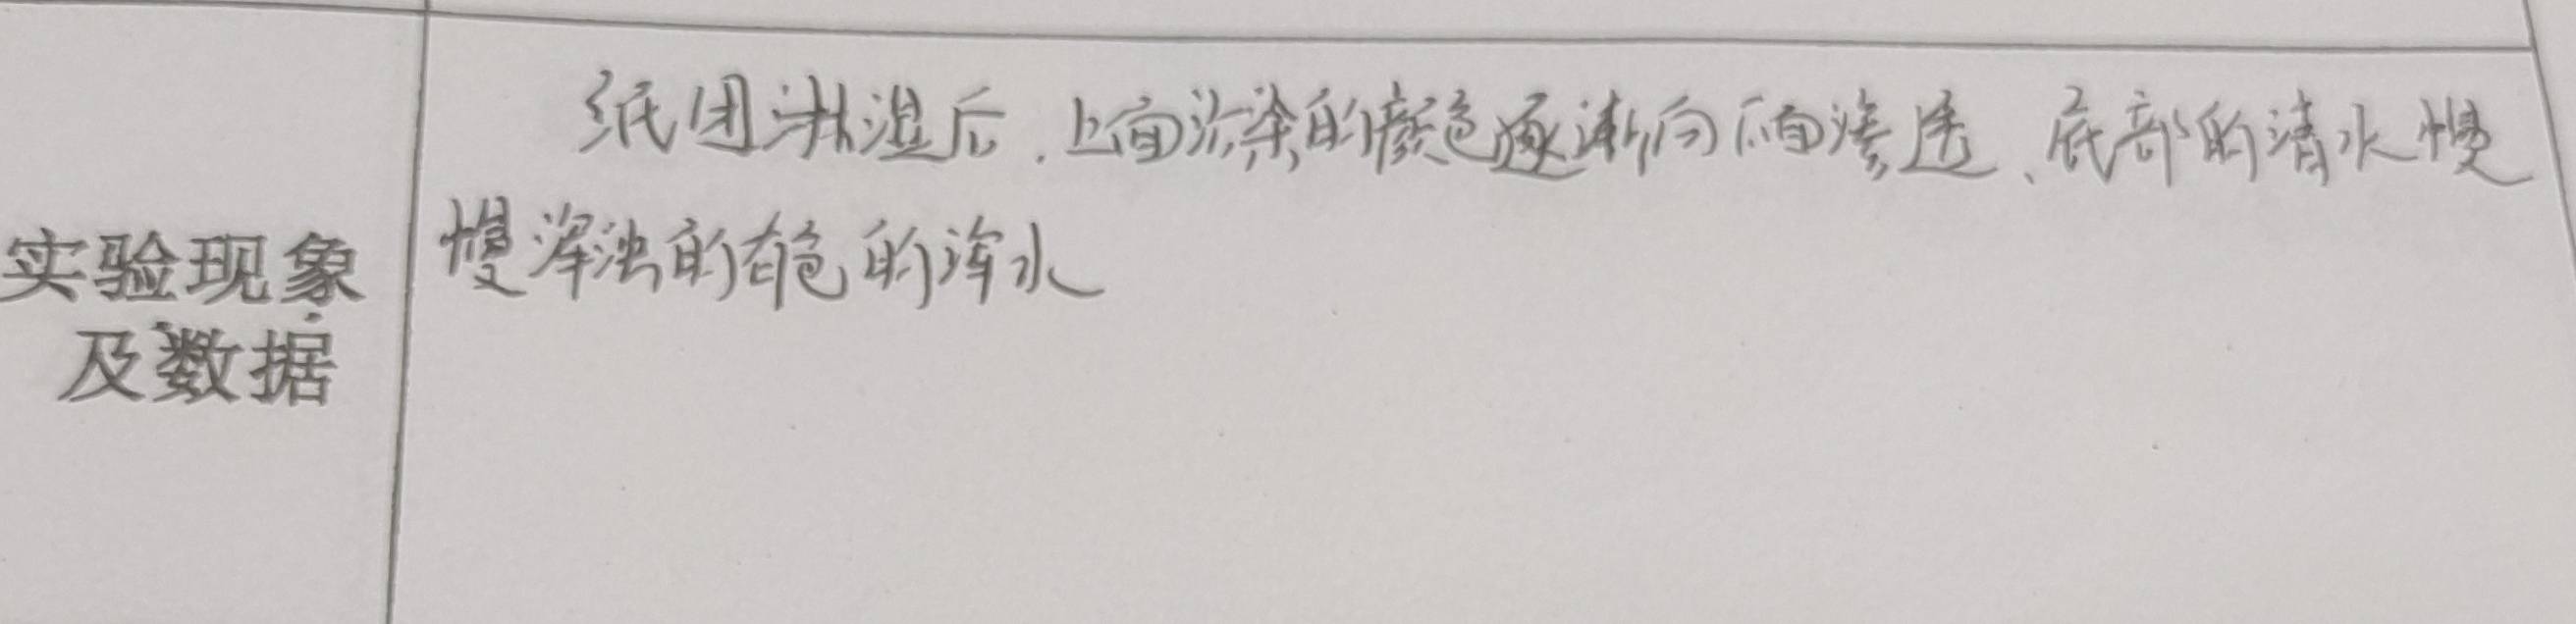 纸团淋湿后，上面涂染的颜色逐渐向下面渗透、底部的清水慢
慢浑浊的有色的浑水
实验现象
及数据